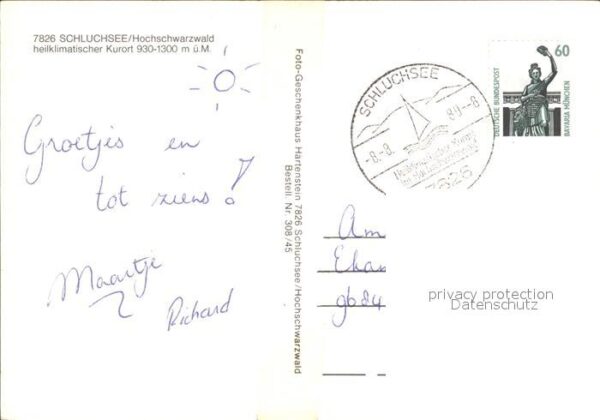 7826 SCHLUCHSEE/Hochschwarzwald
heilklimatischer Kurort 930-1300 m ü.M.
Groetjes en
tot ziens!
Maartje
Richard
Foto-Geschenkhaus Hartenstein 7826 Schluchsee/Hochschwarzwald
Bestell. Nr. 308/45
SCHLUCHSEE
-8.-8. 89.-8
Heilklimatischer Kurort
7826
60
DEUTSCHE BUNDESPOST
BAVARIA MÜNCHEN
Am
Ekam
privacy protection
Datenschutz